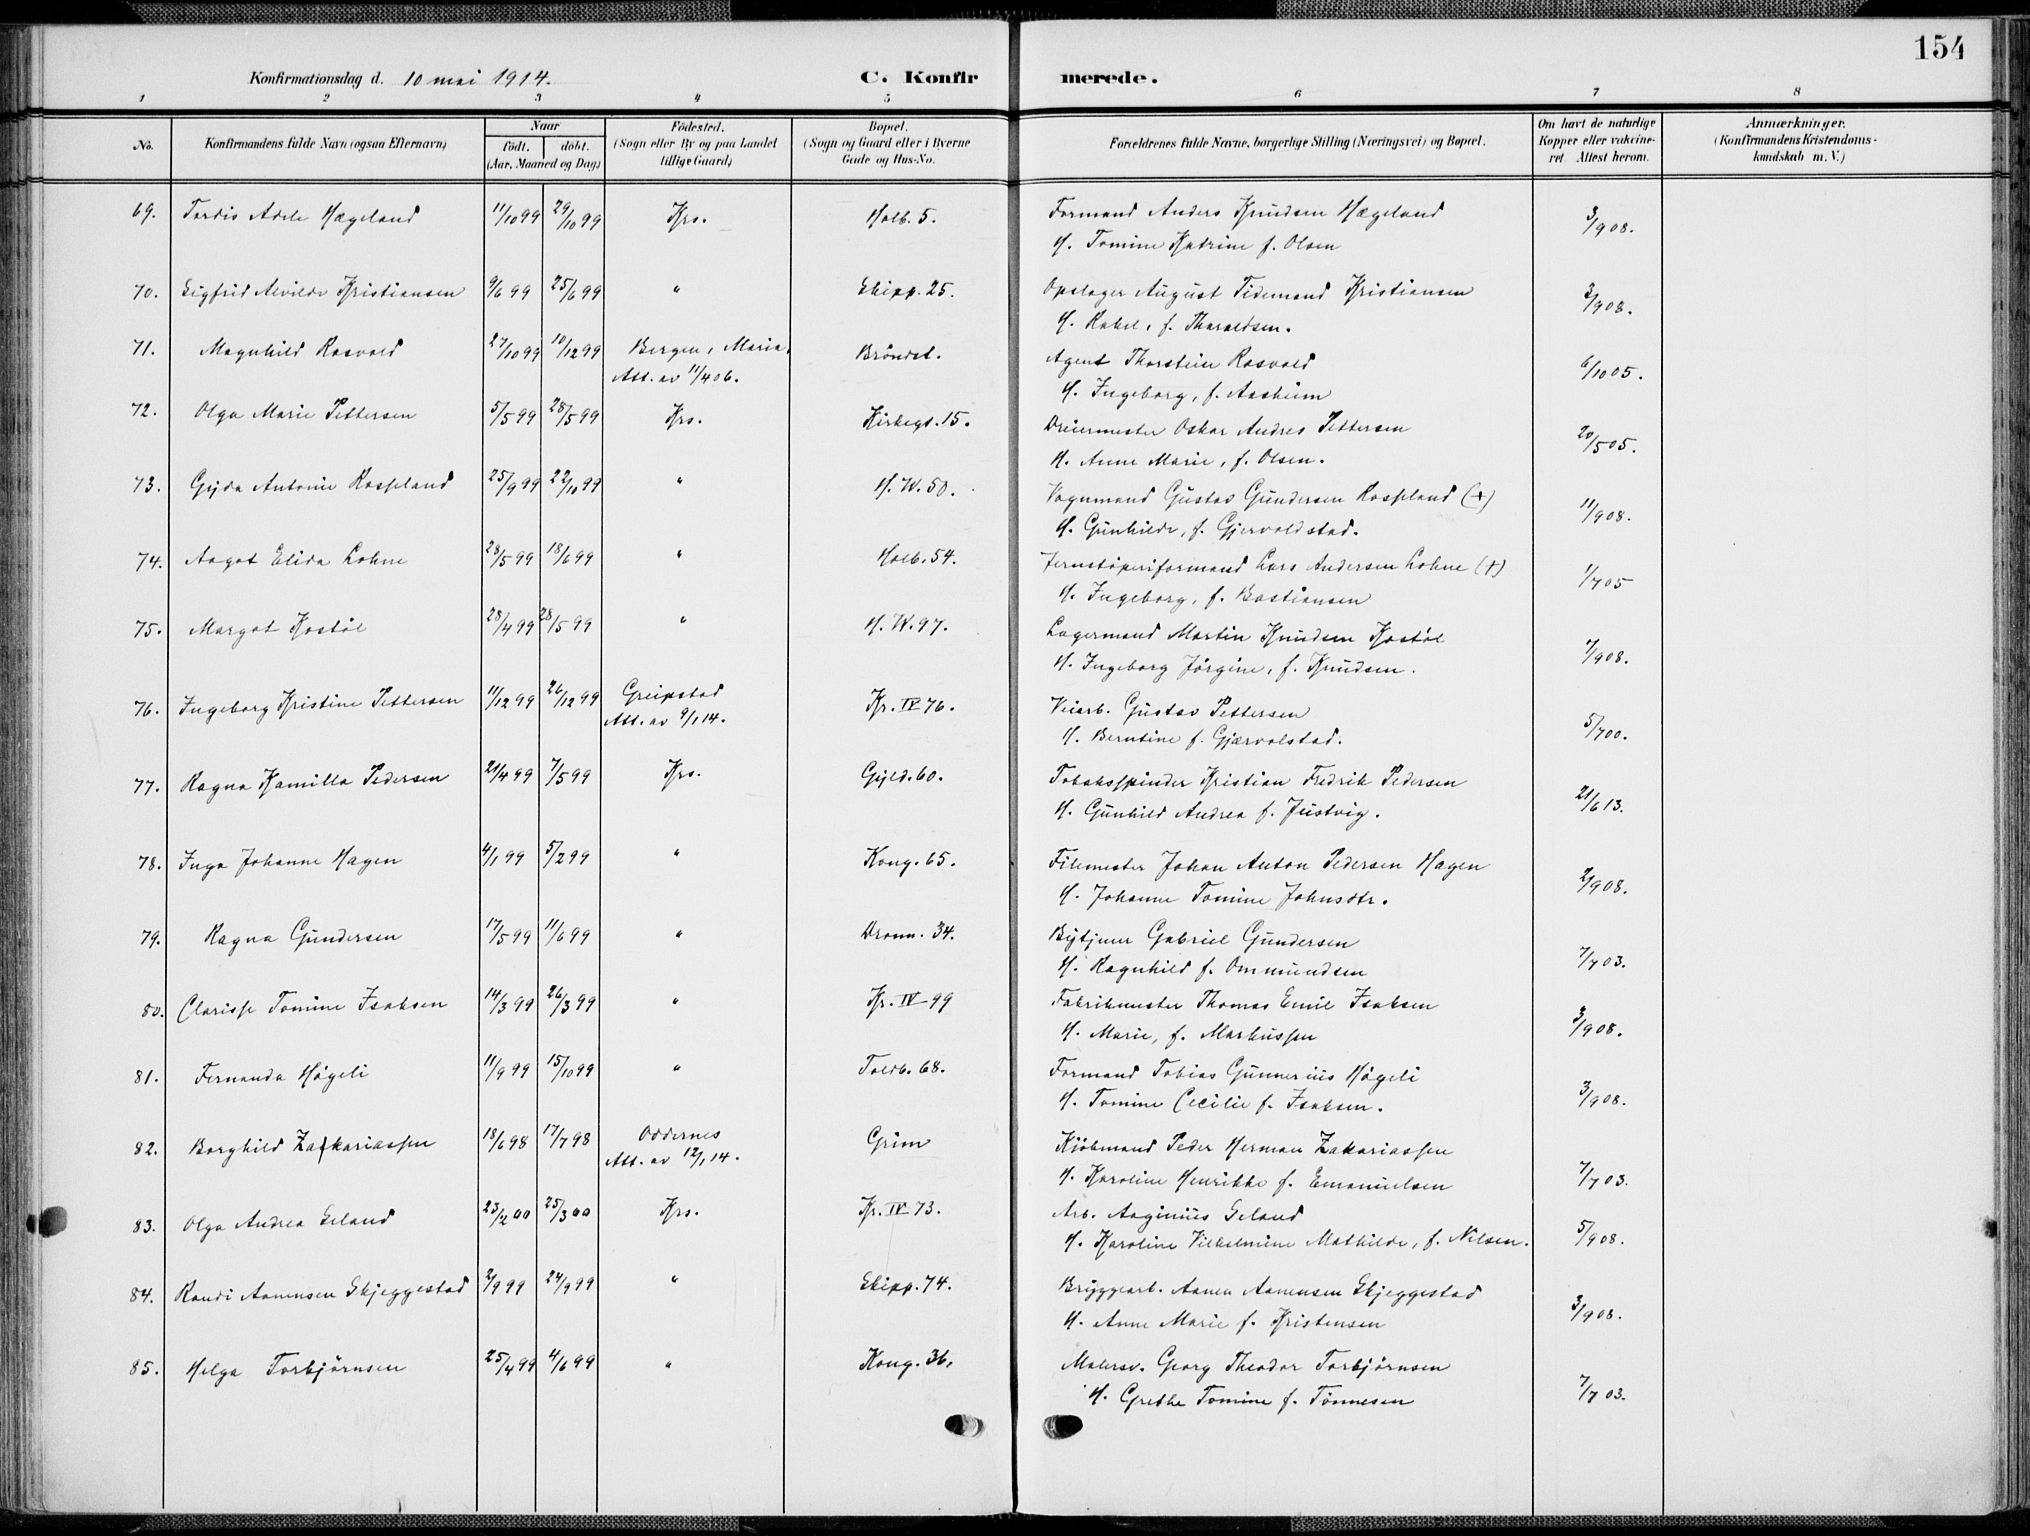 154
Konfirmationsdag d. 10 mai 1914. C. Konfir merede.
1 2 3 4 5 6 7 8
No. Konfirmandens fulde Navn (ogsaa Efternavn) Naar født. døbt. (Aar, Maaned og Dag) Fødested. (Sogn eller By og paa Landet tillige Gaard) Bopæl. (Sogn og Gaard eller i Byerne Gade og Hus-No. Forældrenes fulde Navne, borgerlige Stilling (Næringsvei) og Bopæl. Om havt de naturlige Kopper eller vakcineret. Attest herom. Anmærkninger. (Konfirmandens Kristendomskundskab m. V.)
69. Tordis Adele Hægeland 11/10 99 29/10 99 Krs. Holb. 5. Formand Anders Knudsen Hægeland 3/9 08.
H. Tomine Katrine f. Olsen
70. Sigfrid Alvilde Kristiansen 9/6 99 25/6 99 " Skipp. 25. Opslager August Tidemand Kristiansen 3/9 08.
H. Rakel, f. Tharaldsen.
71. Magnhild Rosvold 27/10 99 10/12 99 Bergen, Maria, Brøndst. Agent Thorstein Rosvold 6/10 05.
Att. av 11/4 06. H. Ingeborg, f. Aasheim
72. Olga Marie Pettersen 5/5 99 28/5 99 Krs. Kirkegt. 15. Dreiermester Oskar Andres Pettersen 20/5 05.
H. Anne Marie, f. Olsen.
73. Gyda Antonie Rossland 25/9 99 22/10 99 " H. W. 50. Vognmand Gustav Gundersen Rossland (+) 11/9 08.
H. Gunhilde, f. Gjervoldstad.
74. Aagot Elida Lohne 28/5 99 18/6 99 " Holb. 54. Jernstøperiformand Lars Andersen Lohne (+) 1/7 05
H. Ingeborg, f. Bastiansen
75. Margot Kostøl 28/4 99 28/5 99 " H. W. 97. Lagermand Martin Knudsen Kostøl 7/9 08.
H. Ingeborg Jørgine, f. Knudsen.
76. Ingeborg Kristine Pettersen 11/12 99 26/12 99 Greipstad Kr. IV 76. Veiarb. Gustav Pettersen 5/7 00.
Att. av 9/1 14. H. Berntine f. Gjærvolstad.
77. Ragna Kamilla Pedersen 21/4 99 7/5 99 Krs. Gyld. 60. Tobaksspinder Kristian Fredrik Pedersen 21/6 13.
H. Gunhild Andrea f. Justvig.
78. Inga Johanne Hagen 4/1 99 5/2 99 " Kong. 65. Filemester Johan Anton Pedersen Hagen 2/9 08.
H. Johanne Tomine Johnsdtr.
79. Ragna Gundersen 17/5 99 11/6 99 " Dronn. 34. Bytjener Gabriel Gundersen 7/7 03.
H. Ragnhild f. Ommundsen
80. Clarisse Tomine Isaksen 14/3 99 26/3 99 " Kr. IV 99 Fabrikmester Thomas Emil Isaksen 3/9 08.
H. Marie, f. Markussen
81. Fernanda Høgeli 11/9 99 15/10 99 " Toldb. 68. Formand Tobias Gunnerius Høgeli 3/9 08.
H. Tomine Cecilie f. Isaksen.
82. Borghild Zakkariassen 18/6 98 17/7 98 Oddernes Grim Kjøbmand Peder Herman Zakariassen 7/7 03.
Att. av 12/1 14. H. Karoline Henrikke f. Emanuelsen
83. Olga Andrea Geland 23/2 00 25/3 00 Krs. Kr. IV 73. Arb. Aaginius Geland 5/9 08.
H. Karoline Vilhelmine Mathilde, f. Nilsen.
84. Randi Aanensen Skjeggestad 2/9 99 24/9 99 " Skipp. 74. Bryggearb. Aanen Aanensen Skjeggestad 3/9 08.
H. Anne Marie f. Kristensen
85. Helga Torbjørnsen 25/4 99 4/6 99 " Kong. 36. Malersv. Georg Theodor Torbjørnsen 7/7 03.
H. Grethe Tomine f. Tønnesen